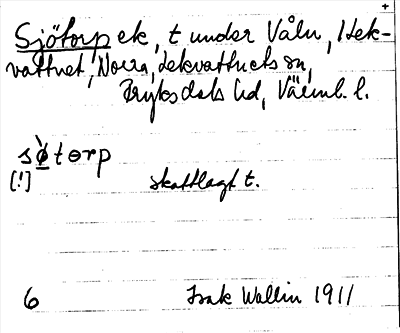 Sjötorp ek, t under Våln, Lek-
vattnet, Norra, Lekvattnets sn,
Fryksdals hd, Värml. l.
s ø̀ t ɵ r p
[!] skattlagt t.
6 Isak Wallin 1911